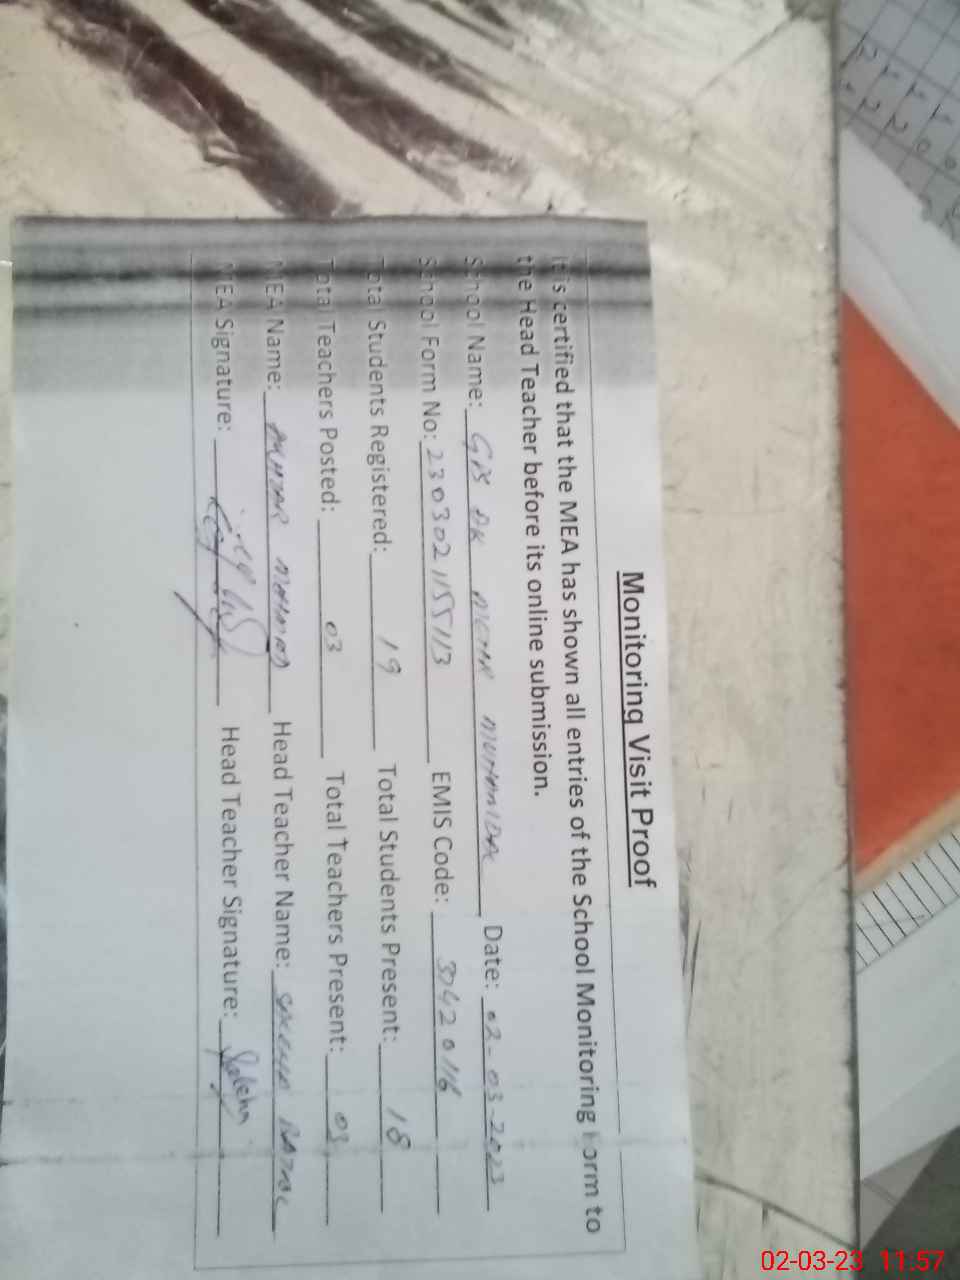 Monitoring Visit Proof
It is certified that the MEA has shown all entries of the School Monitoring Form to
the Head Teacher before its online submission.
School Name: GPS Date: 02-03-2023
School Form No: 2303021155113 EMIS Code:
Total Students Registered: 19 Total Students Present: 18
Total Teachers Posted: 03 Total Teachers Present: 03
MEA Name: Head Teacher Name:
MEA Signature: Head Teacher Signature:
02-03-23 11:57